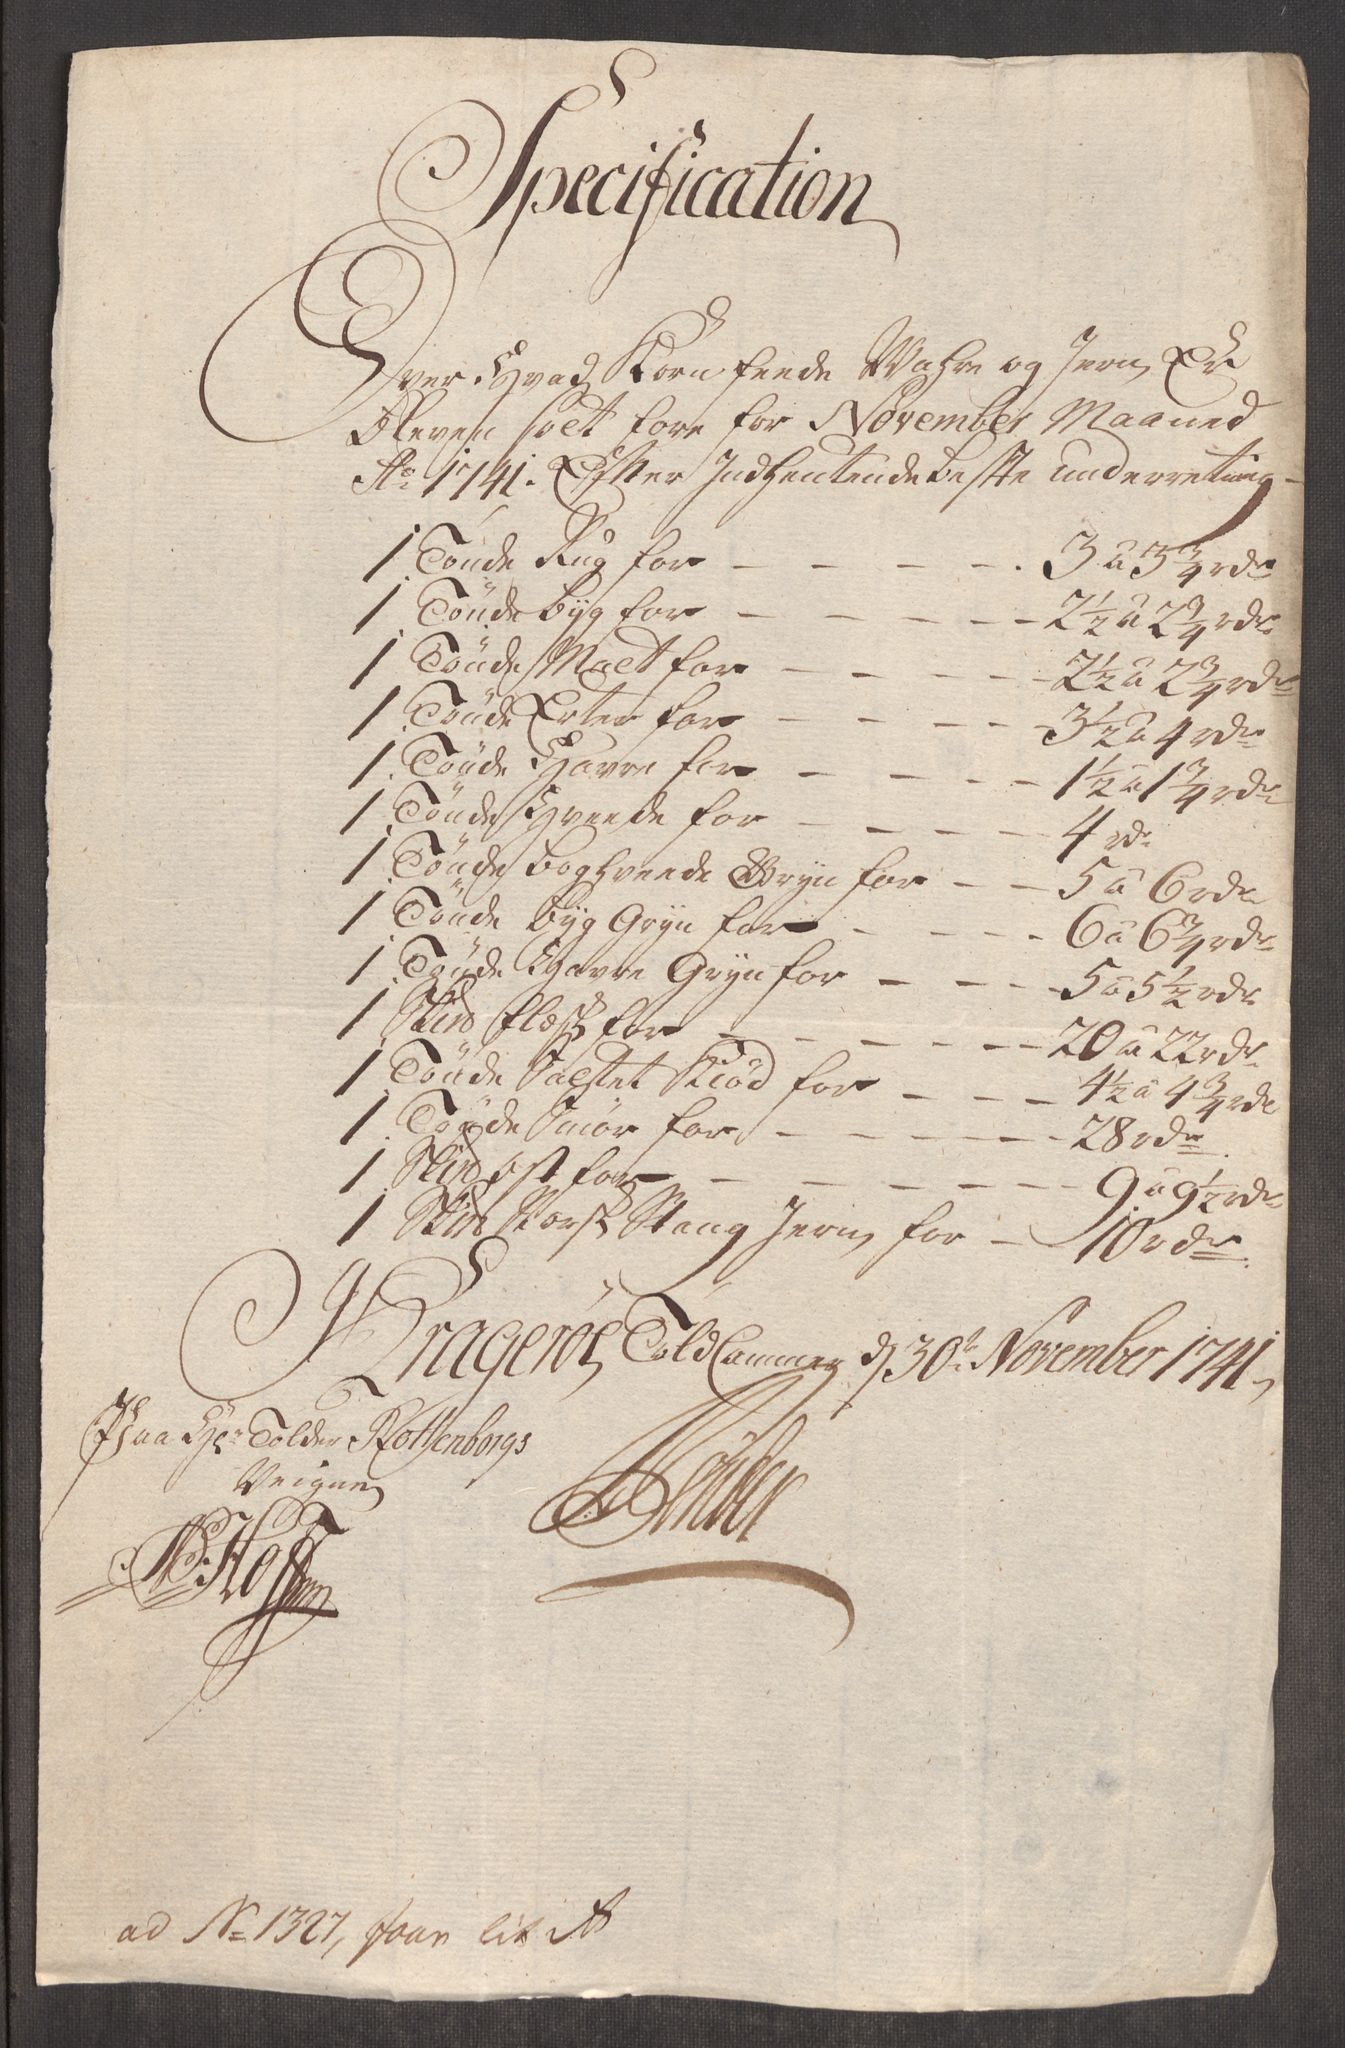 Specification
Over Hvad Korn feede Wahre og Jern, Er
Bleven solt fore for November Maaned
Ao 1741. Efter Indhentende beste underretning
1 Tönde Rug for — — — — — . 3 a 3 3/4 rdr
1 Tönde byg for — — — — — 2 1/2 a 2 3/4 rdr
1 Tönde Malt for — — — — 2 1/2 a 2 3/4 rdr
1 Tönde Erter for — — — — 3 1/2 a 4 rdr
1 Tönde Havre for — — — — 1 1/2 a 1 3/4 rdr
1 Tönde Hveede for — — — — 4 rdr
1 Tönde boghveede Gryn for — — 5 a 6 rdr
1 Tönde byg Gryn for — — — 6 a 6 3/4 rdr
1 Tönde Havre Gryn for — — — 5 a 5 1/2 rdr
1 Skpd flesk for — — — — — 20 a 22 rdr
1 Tönde Saltet Kiöd for — — — 4 1/2 a 4 3/4 rdr
1 Tönde Smör for — — — — — 28 rdr
1 Skpd ost for — — — — — 9 a 9 1/2 rdr
1 Skpd Norsk Stang Jern for — 10 rdr
Kragerøe Told Cammer d 30te November 1741
Paa Hr Tolder Rottenborgs
Veigne
Hoffman
ad No 1327, faar lit A